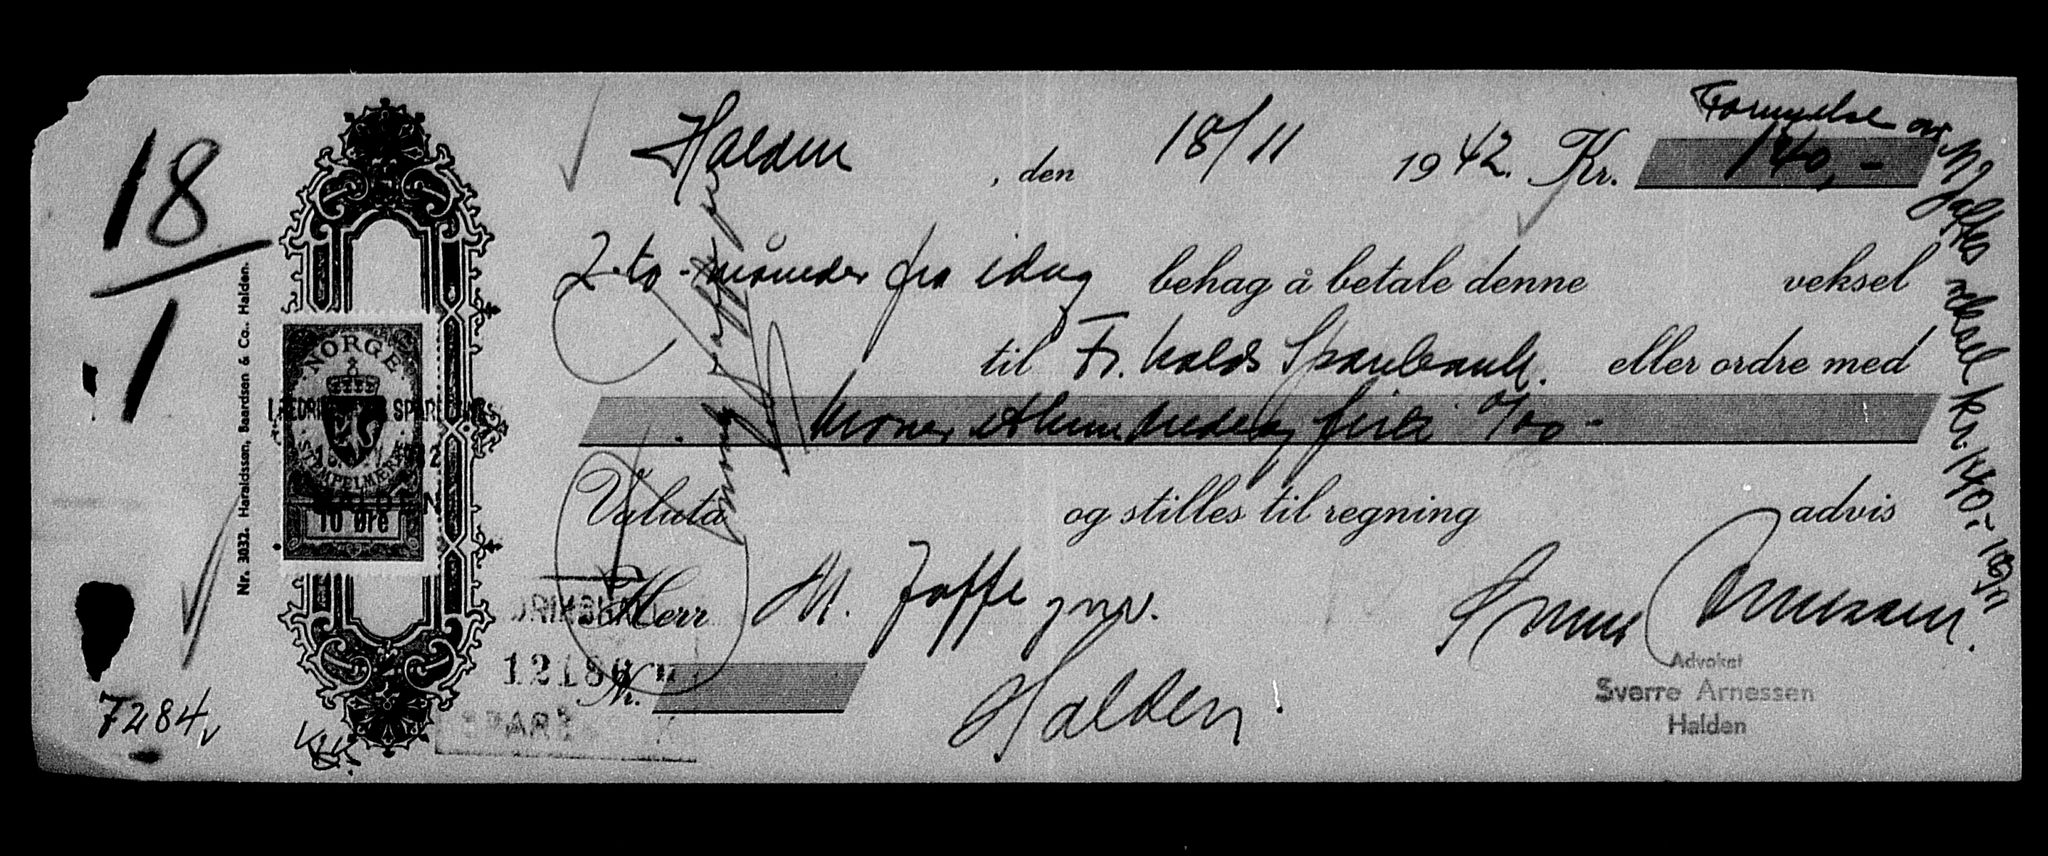 Fornyelse av M Jaffes veksel kr. 140,- 18/9
Halden, den 18/11 1942. Kr. 140,-
2-to-måneder fra idag behag å betale denne veksel
til Fr.halds Sparebank. eller ordre med
kroner ethundredeogfirti 0/00-
Valuta og stilles til regning advis
Herr M. Jaffe jnr.
Halden.
Kr.
Advokat
Sverre Arnessen
Halden
18/1
7284
Nr. 3032. Haraldssen, Baardsen & Co., Halden.
NORGE
STEMPELMERKE
10 øre
1218
SPAREB